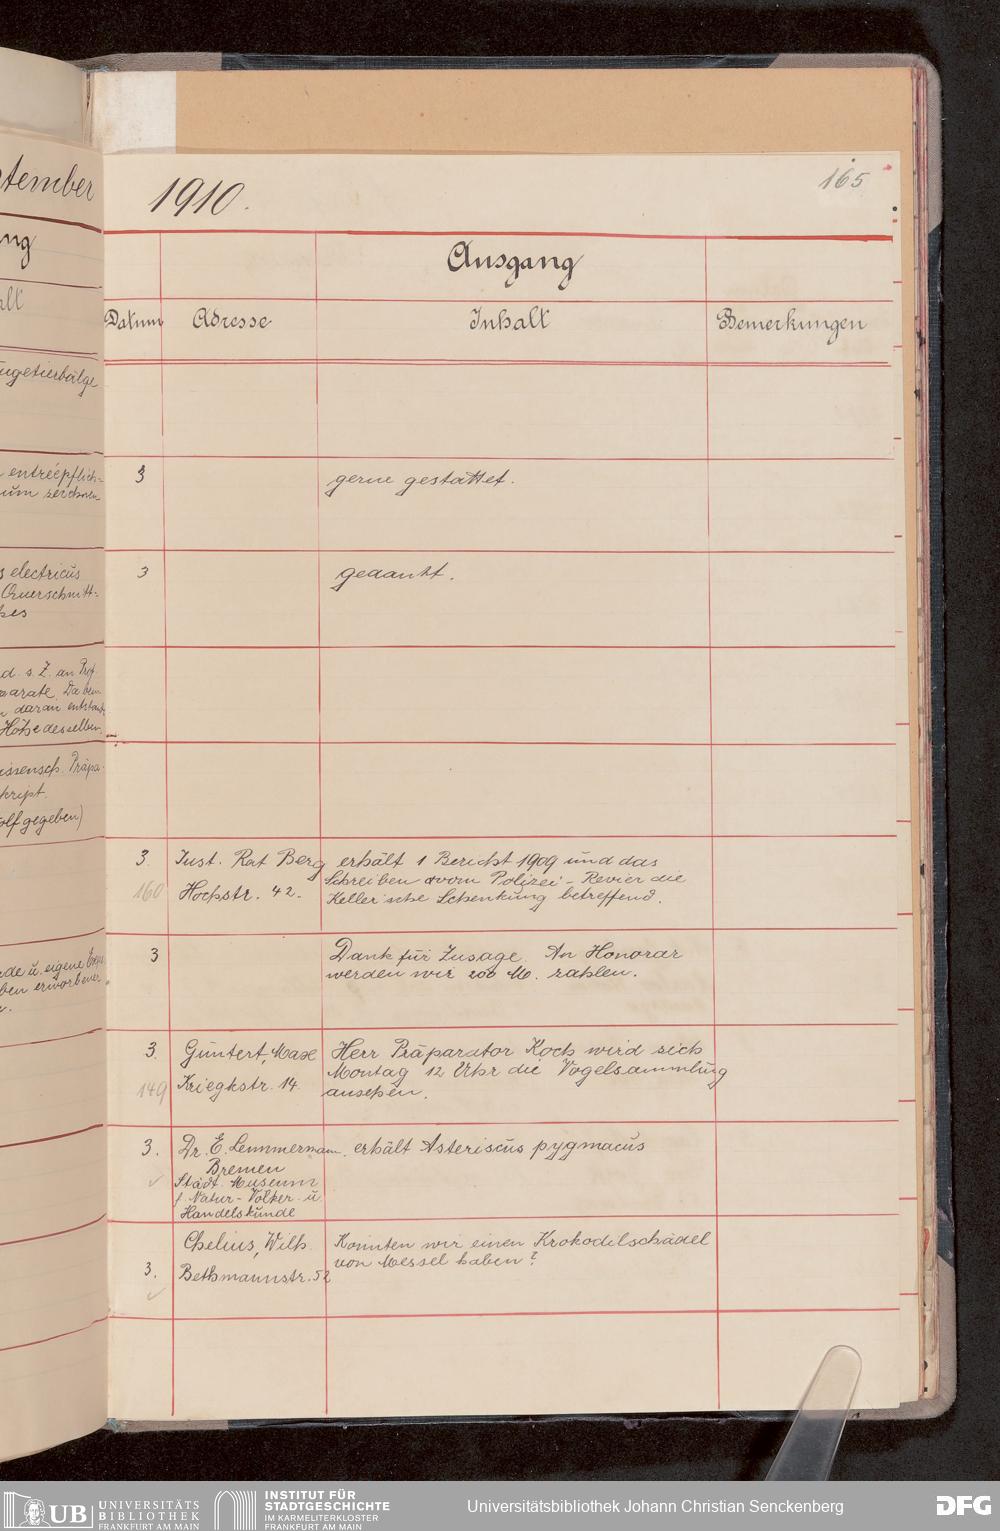 tember
ng
alt
ugetierbälge
entréepflich=
um zeichnen
s electricus
Querschnitt=
hes
d. s. Z. an Prof.
parate. Da dem
daran entstand.
Höhe desselben.
issensch. Präpa-
kript.
olf gegeben)
de u. eigene
ben erworbener
1910.
165
Ausgang
Datum Adresse Inhalt Bemerkungen
3 gerne gestattet.
3 gedankt.
3. Just. Rat Berg erhält 1 Bericht 1909 und das
Schreiben vom Polizei-Revier die
160 Hochstr. 42. Keller'sche Schenkung betreffend.
3 Dank für Zusage. An Honorar
werden wir 200 M. zahlen.
3. Güntert, Max Herr Präparator Koch wird sich
Montag 12 Uhr die Vogelsammlung
149 Kriegkstr. 14. ansehen.
3. Dr. E. Lemmermann. erhält Asteriscus pygmacus
Bremen
Städt. Museum
f. Natur- Völker- u
Handelskunde
Chelius, Wilh. Könnten wir einen Krokodilschädel
von Messel haben?
3. Bethmannstr. 52
UB
UNIVERSITÄTS
BIBLIOTHEK
FRANKFURT AM MAIN
INSTITUT FÜR
STADTGESCHICHTE
IM KARMELITERKLOSTER
FRANKFURT AM MAIN
Universitätsbibliothek Johann Christian Senckenberg
DFG